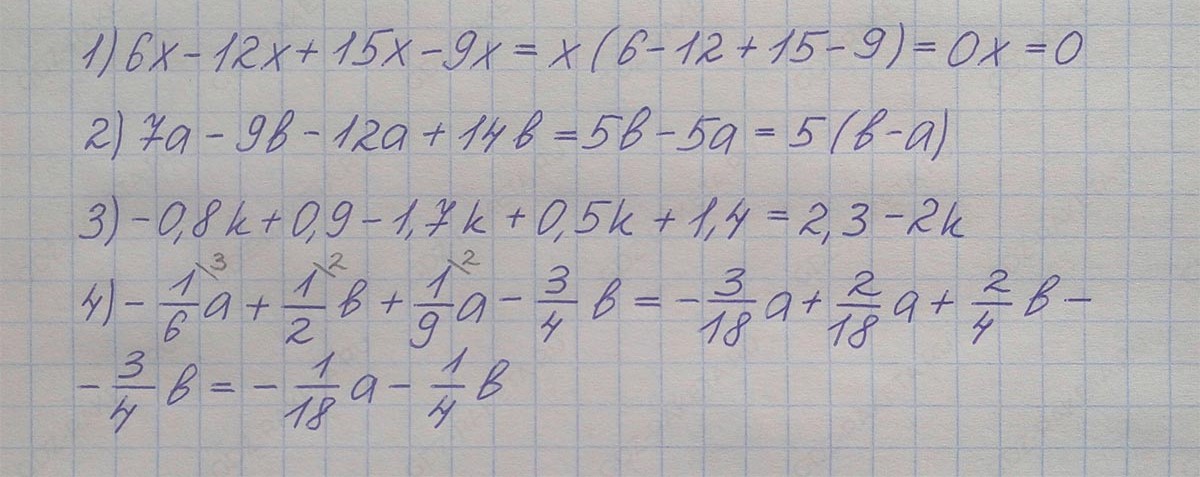 1) 6x - 12x + 15x - 9x = x (6 - 12 + 15 - 9) = 0x = 0
2) 7a - 9в - 12a + 14в = 5в - 5a = 5 (в - a)
3) - 0,8k + 0,9 - 1,7k + 0,5k + 1,4 = 2,3 - 2k
4) - 1\3/6 a + 1\2/2 в + 1\2/9 a - 3/4 в = - 3/18 a + 2/18 a + 2/4 в -
- 3/4 в = - 1/18 a - 1/4 в